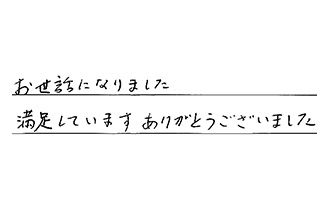 お世話になりました
満足しています ありがとうございました